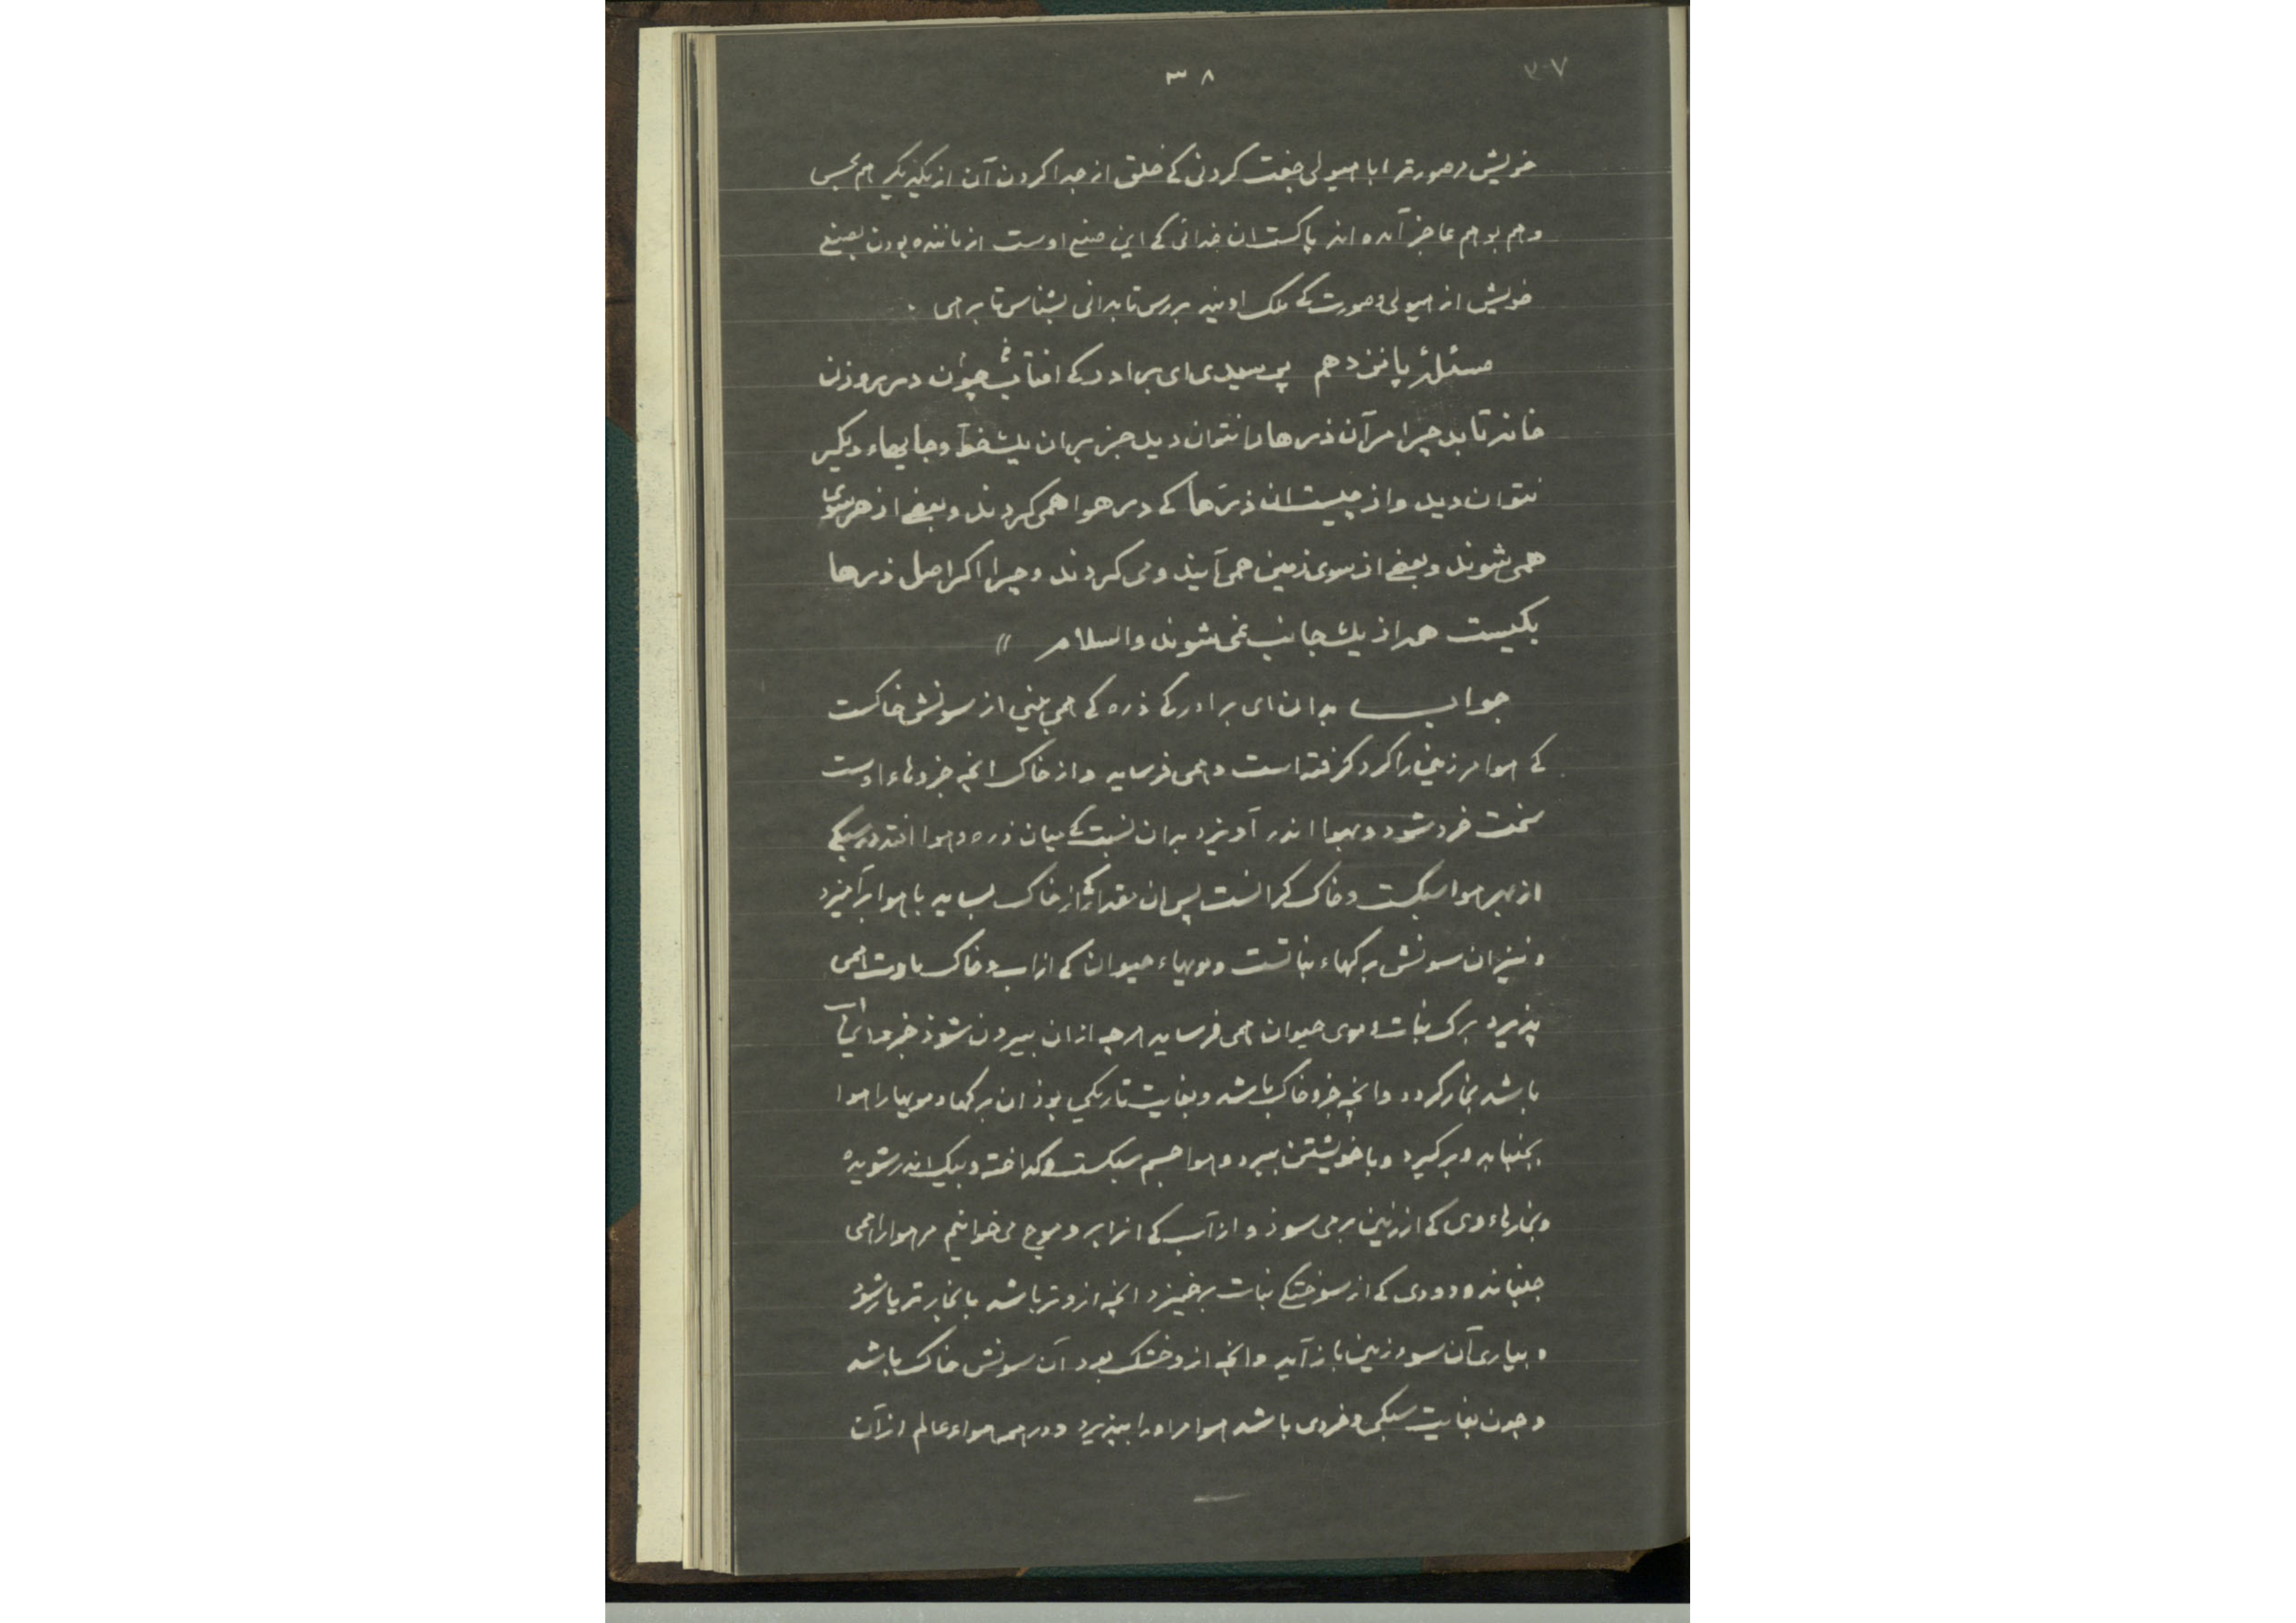 ۳۷
۳۸
خویش مر صورترا با هیولی جفت کردنی کے خلق از جدا کردن آن از یکدیگر هم بحس
وهم بوهم عاجز آمده اند پاکست ان خدائی کے این صنع اوست از ماننده بودن بصنع
خویش از هیولی وصورت کے ملک اویند بررس تا بدانی بشناس تا برهی
مسئلهٔ پانزدهم پرسیدی ای برادر کے افتاب چون در روزن
خانه تابد چرا مر آن ذرها را نتوان دید جز بران یک خط وجایهاء دیگر
نتوان دید واز چیست ان ذرها کے در هوا همی گردند وبعضے از هر سوی
همی شوند وبعضے از سوی زمین همی آیند ومی گردند وچرا اگر اصل ذرها
یکیست همه از یک جانب نمی شوند والسلام
جواب بدان ای برادر کے ذره کے همی بینی از سونش خاکست
کے هوا مر زمین را گرد گرفته است وهمی فرساید واز خاک انچه جزوهاء اوست
سخت خرد شود وبهوا اندر آویزد بدان نسبت کے میان ذره وهوا افتد در سبکے
از بهر هوا سبکست وخاک گرانست پس ان مقدار کے از خاک بساید با هوا برآمیزد
ونیز ان سونش برگهاء نباتست ومویهاء حیوان کے از اب وخاک باوت همی
پذیرد برگ نبات وموی حیوان همی فرساید هرچه از ان بیرون شوذ جزو
باشد بخار گردد وانچه جزو خاک باشد وبغایت تاریکی بوذ ان برگها ومویها را هوا
بجنباند وبرگیرد وبا خویشتن ببرد وهوا جسم سبکست وگداخته وبیک اندر شونده
وبخارهاء وی کے از زمین بر می سوذ واز آب کے انرا بر وموج می خوانیم مر هوا را همی
جنباند ودودی کے از سوختگے نبات برخیزد انچه ازو تر باشد با بخار تر یار شوذ
وبیاری آن سوء زمین باز آید وانچه ازو خشک بود آن سونش خاک باشد
وچون بغایت سبکی وخردی باشد هوا مر اورا بپذیرد ودر همه هواء عالم از آن